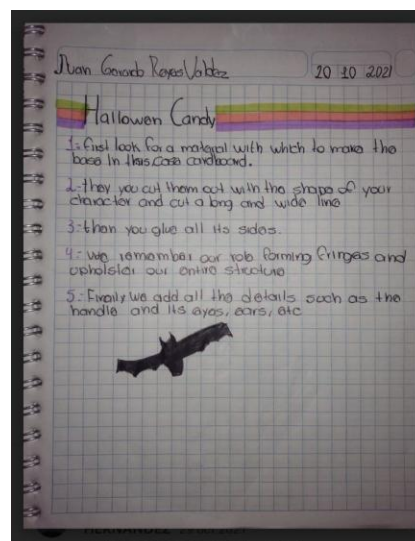 Juan Gerardo Reyes Valdez
20 10 2021
Hallowen Candy
1:-first look for a material with which to make the
base In this case cardboard.
2:-they you cut them out with the shape of your
character and cut a long and wide line
3:-then you glue all its sides.
4:-We remember our role forming fringes and
upholster our entire structure
5:-Finally we add all the details such as the
handle and its eyes, ears, etc
HERNANDEZ